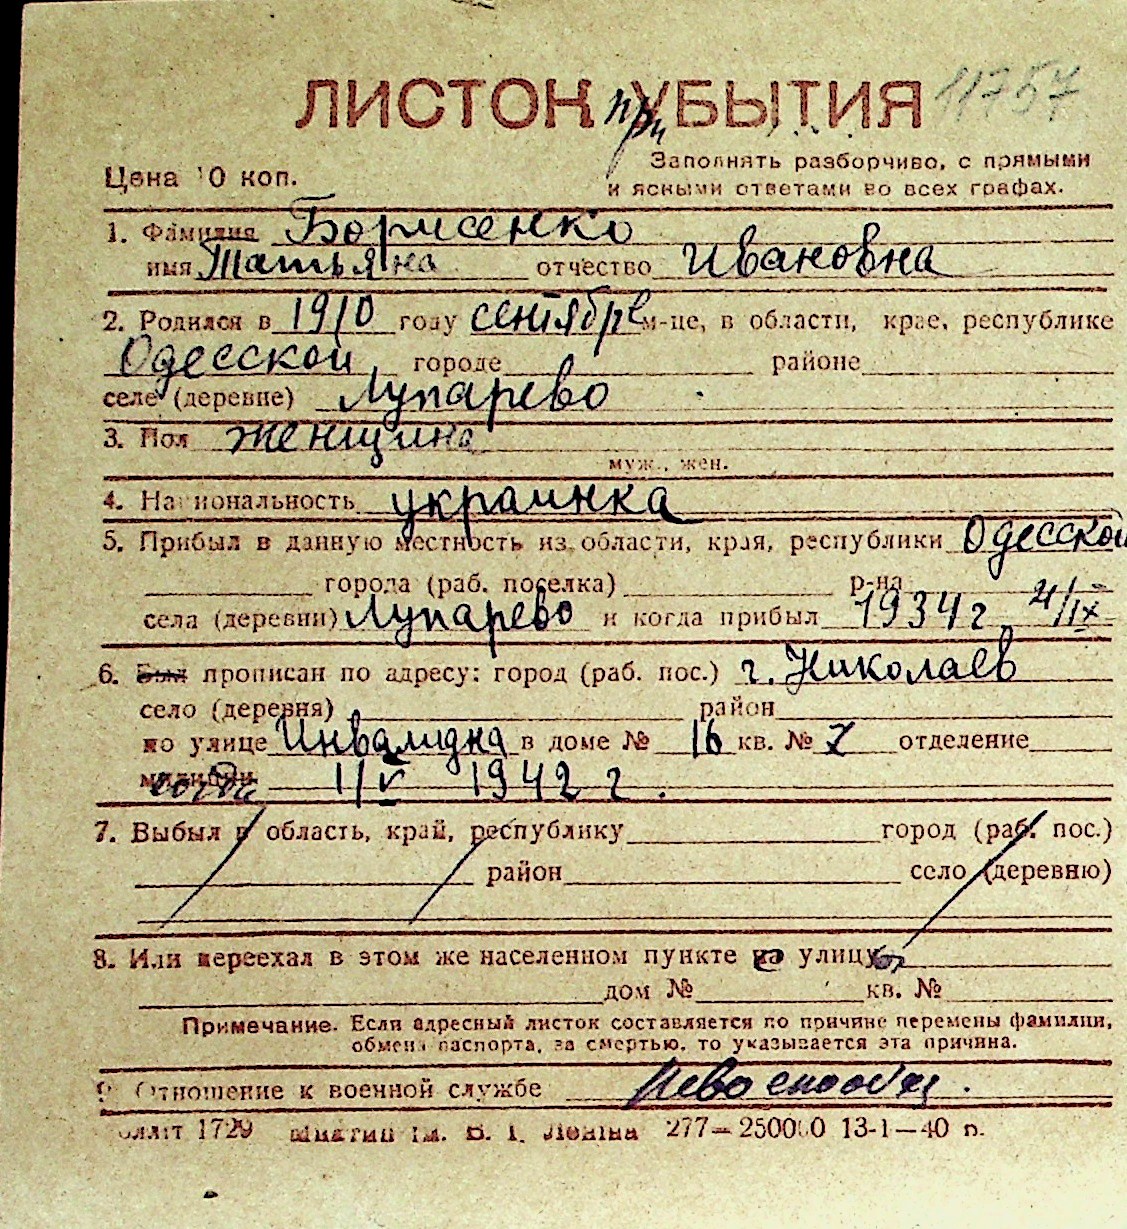 ЛИСТОК при УБЫТИЯ 11757
Цена 10 коп.
Заполнять разборчиво, с прямыми
и ясными ответами во всех графах.
1. Фамилия Борисенко
имя Татьяна отчество Ивановна
2. Родился в 1910 году сентябре м-це, в области, крае, республике
Одесской городе районе
селе (деревне) Лупарево
3. Пол женщина
муж., жен.
4. Национальность украинка
5. Прибыл в данную местность из области, края, республики Одесской
города (раб. поселка) р-на
села (деревни) Лупарево и когда прибыл 1934 г. 4/IX
6. Был прописан по адресу: город (раб. пос.) г. Николаев
село (деревня) район
по улице Инвалидна в доме № 16 кв. № 7 отделение
милиции 1/V 1942 г.
7. Выбыл в область, край, республику город (раб. пос.)
район село (деревню)
8. Или переехал в этом же населенном пункте на улицу
дом № кв. №
Примечание. Если адресный листок составляется по причине перемены фамилии,
обмена паспорта, за смертью, то указывается эта причина.
9. Отношение к военной службе
1729 ім. В. І. Леніна 277—250000 13-1—40 р.